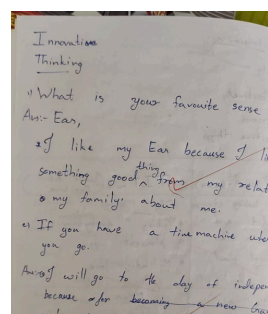 Innovation
Thinking
1) What is your favourite sense
Ans:- Ear,
I like my Ear because I li
something good thing from my relat
my family. about me.
2) If you have a time machine wher
you go.
Ans:- I will go to the day of indepen
because for becoming a new